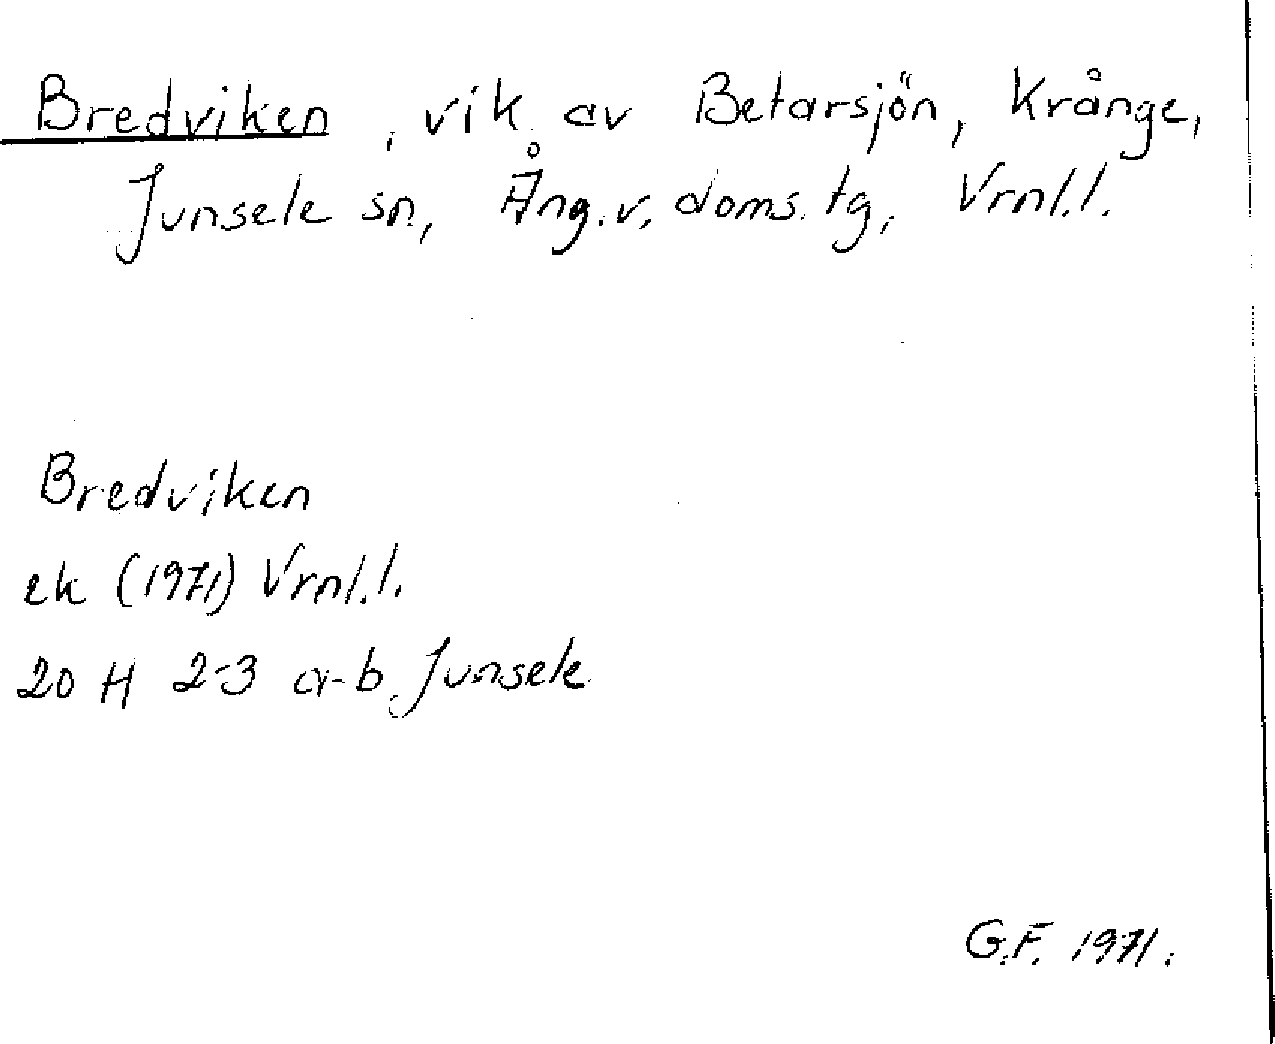 Bredviken, vik av Betarsjön, Krånge,
Junsele sn, Ång.v. doms. tg, Vrnl.l.
Bredviken
ek (1971) Vrnl.l.
20 H 2-3 a-b, Junsele
G.F. 1971.